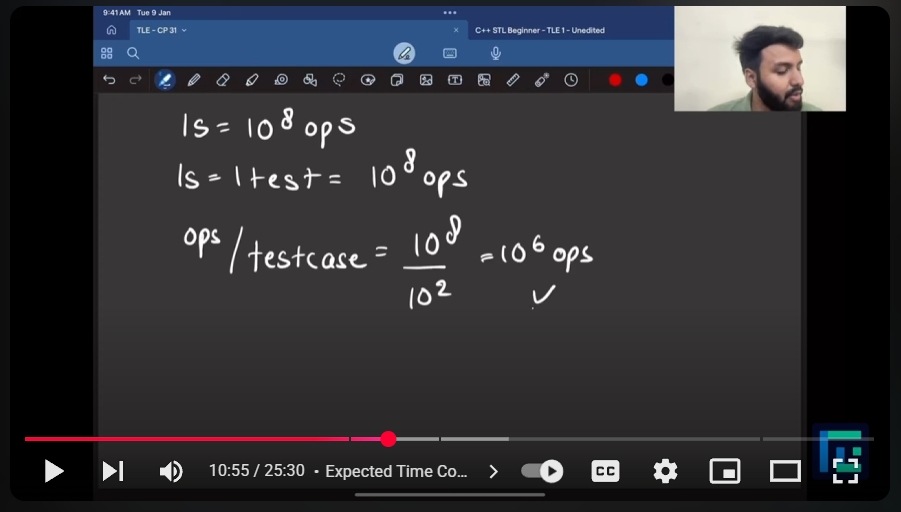 9:41 AM Tue 9 Jan
TLE - CP 31
C++ STL Beginner - TLE 1 - Unedited
1s = 10⁸ ops
1s = 1 test = 10⁸ ops
ops / testcase = 10⁸ / 10² = 10⁶ ops
10:55 / 25:30 • Expected Time Co...
CC